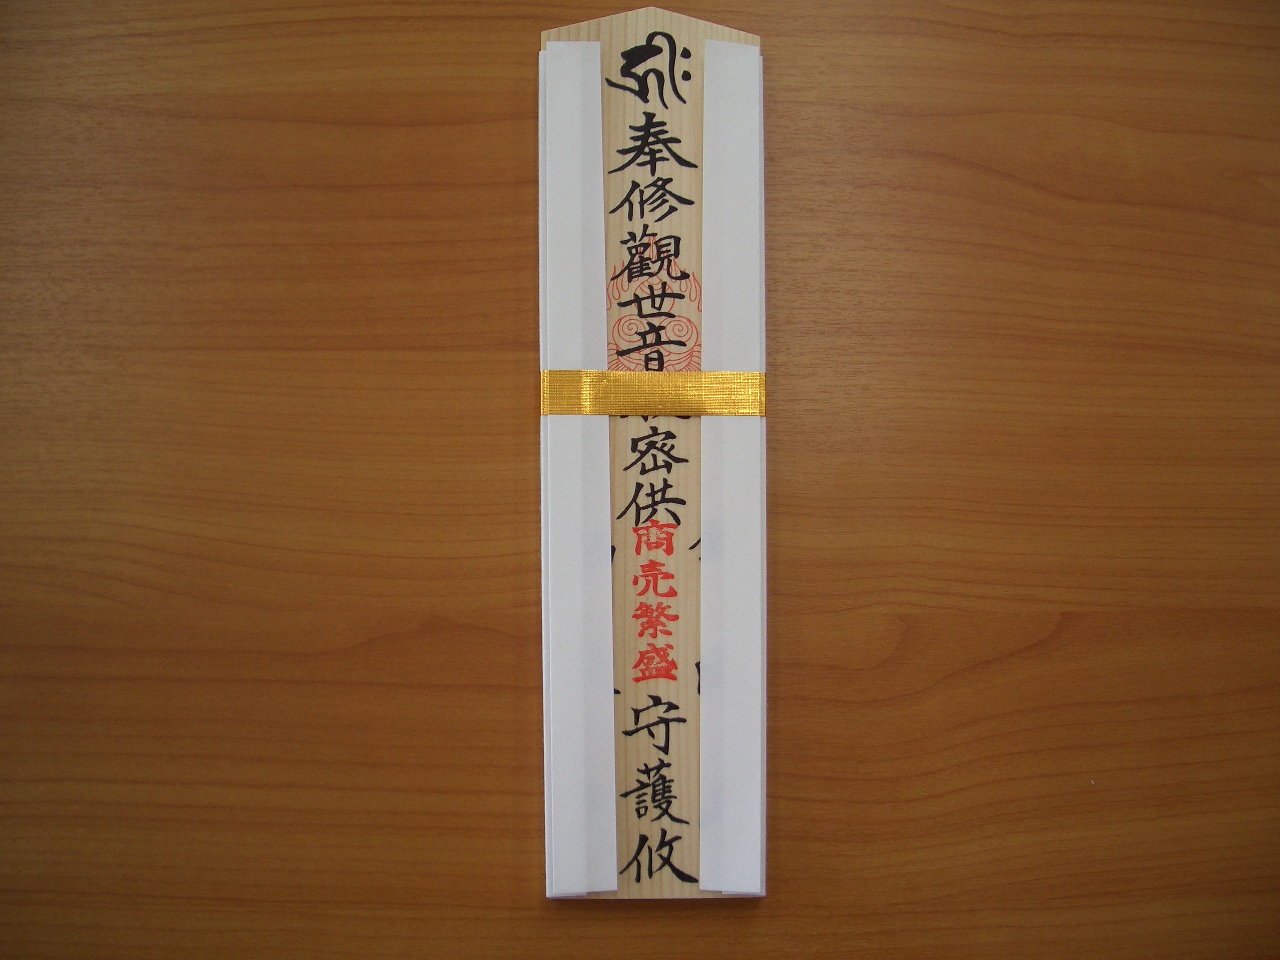 奉修觀世音密供商売繁盛守護攸